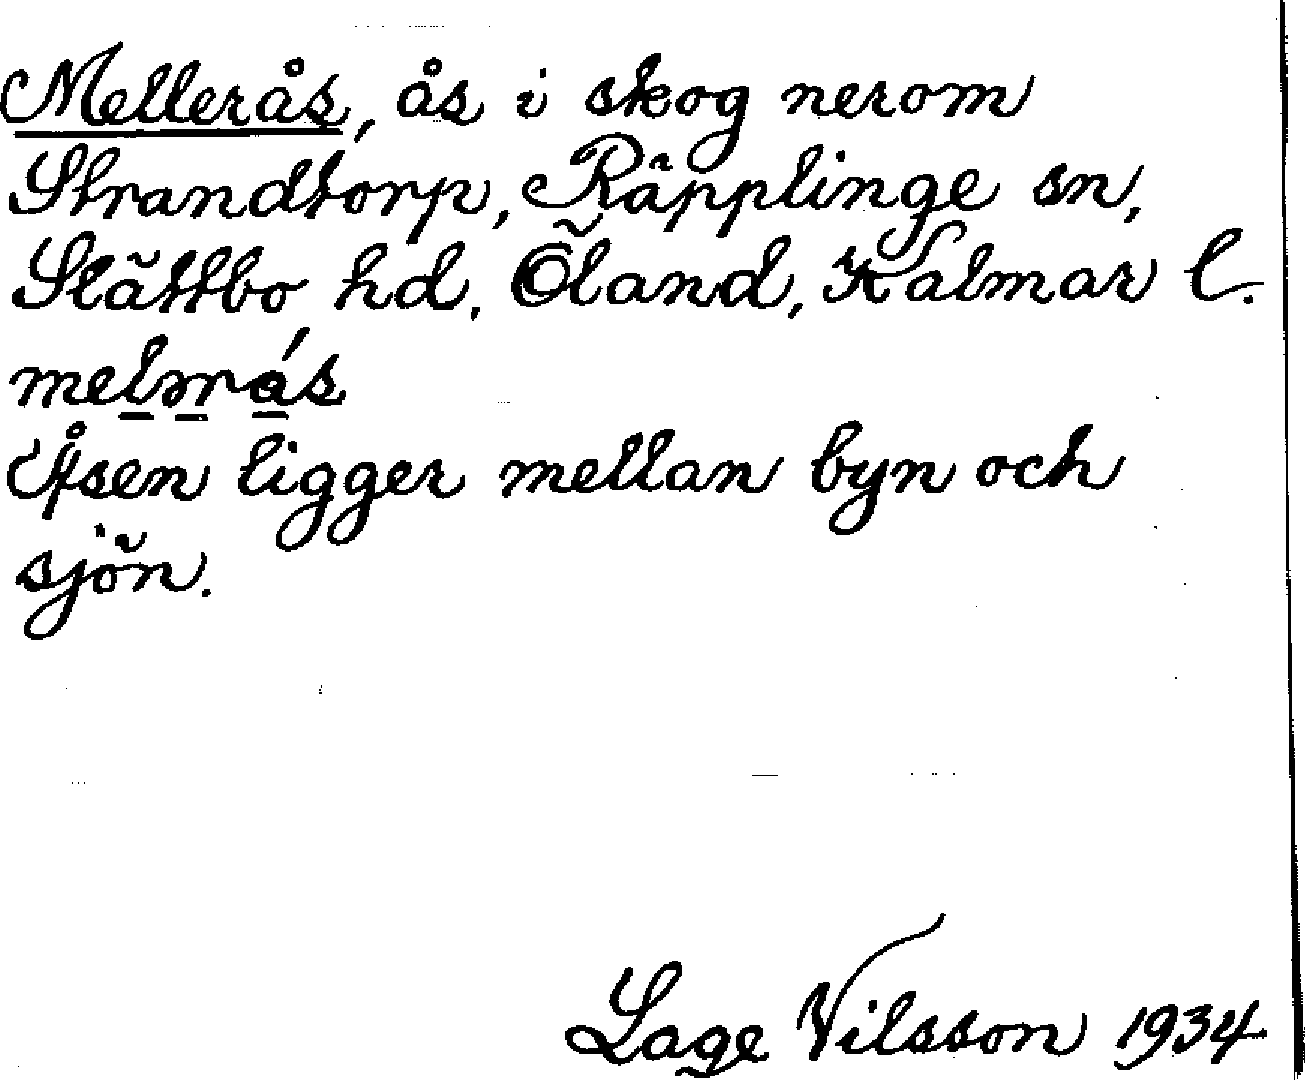 Mellerås, ås i skog nerom
Strandtorp, Räpplinge sn,
Slättbo hd, Öland, Kalmar l.
Åsen ligger mellan byn och
sjön.
Lage Nilsson 1934